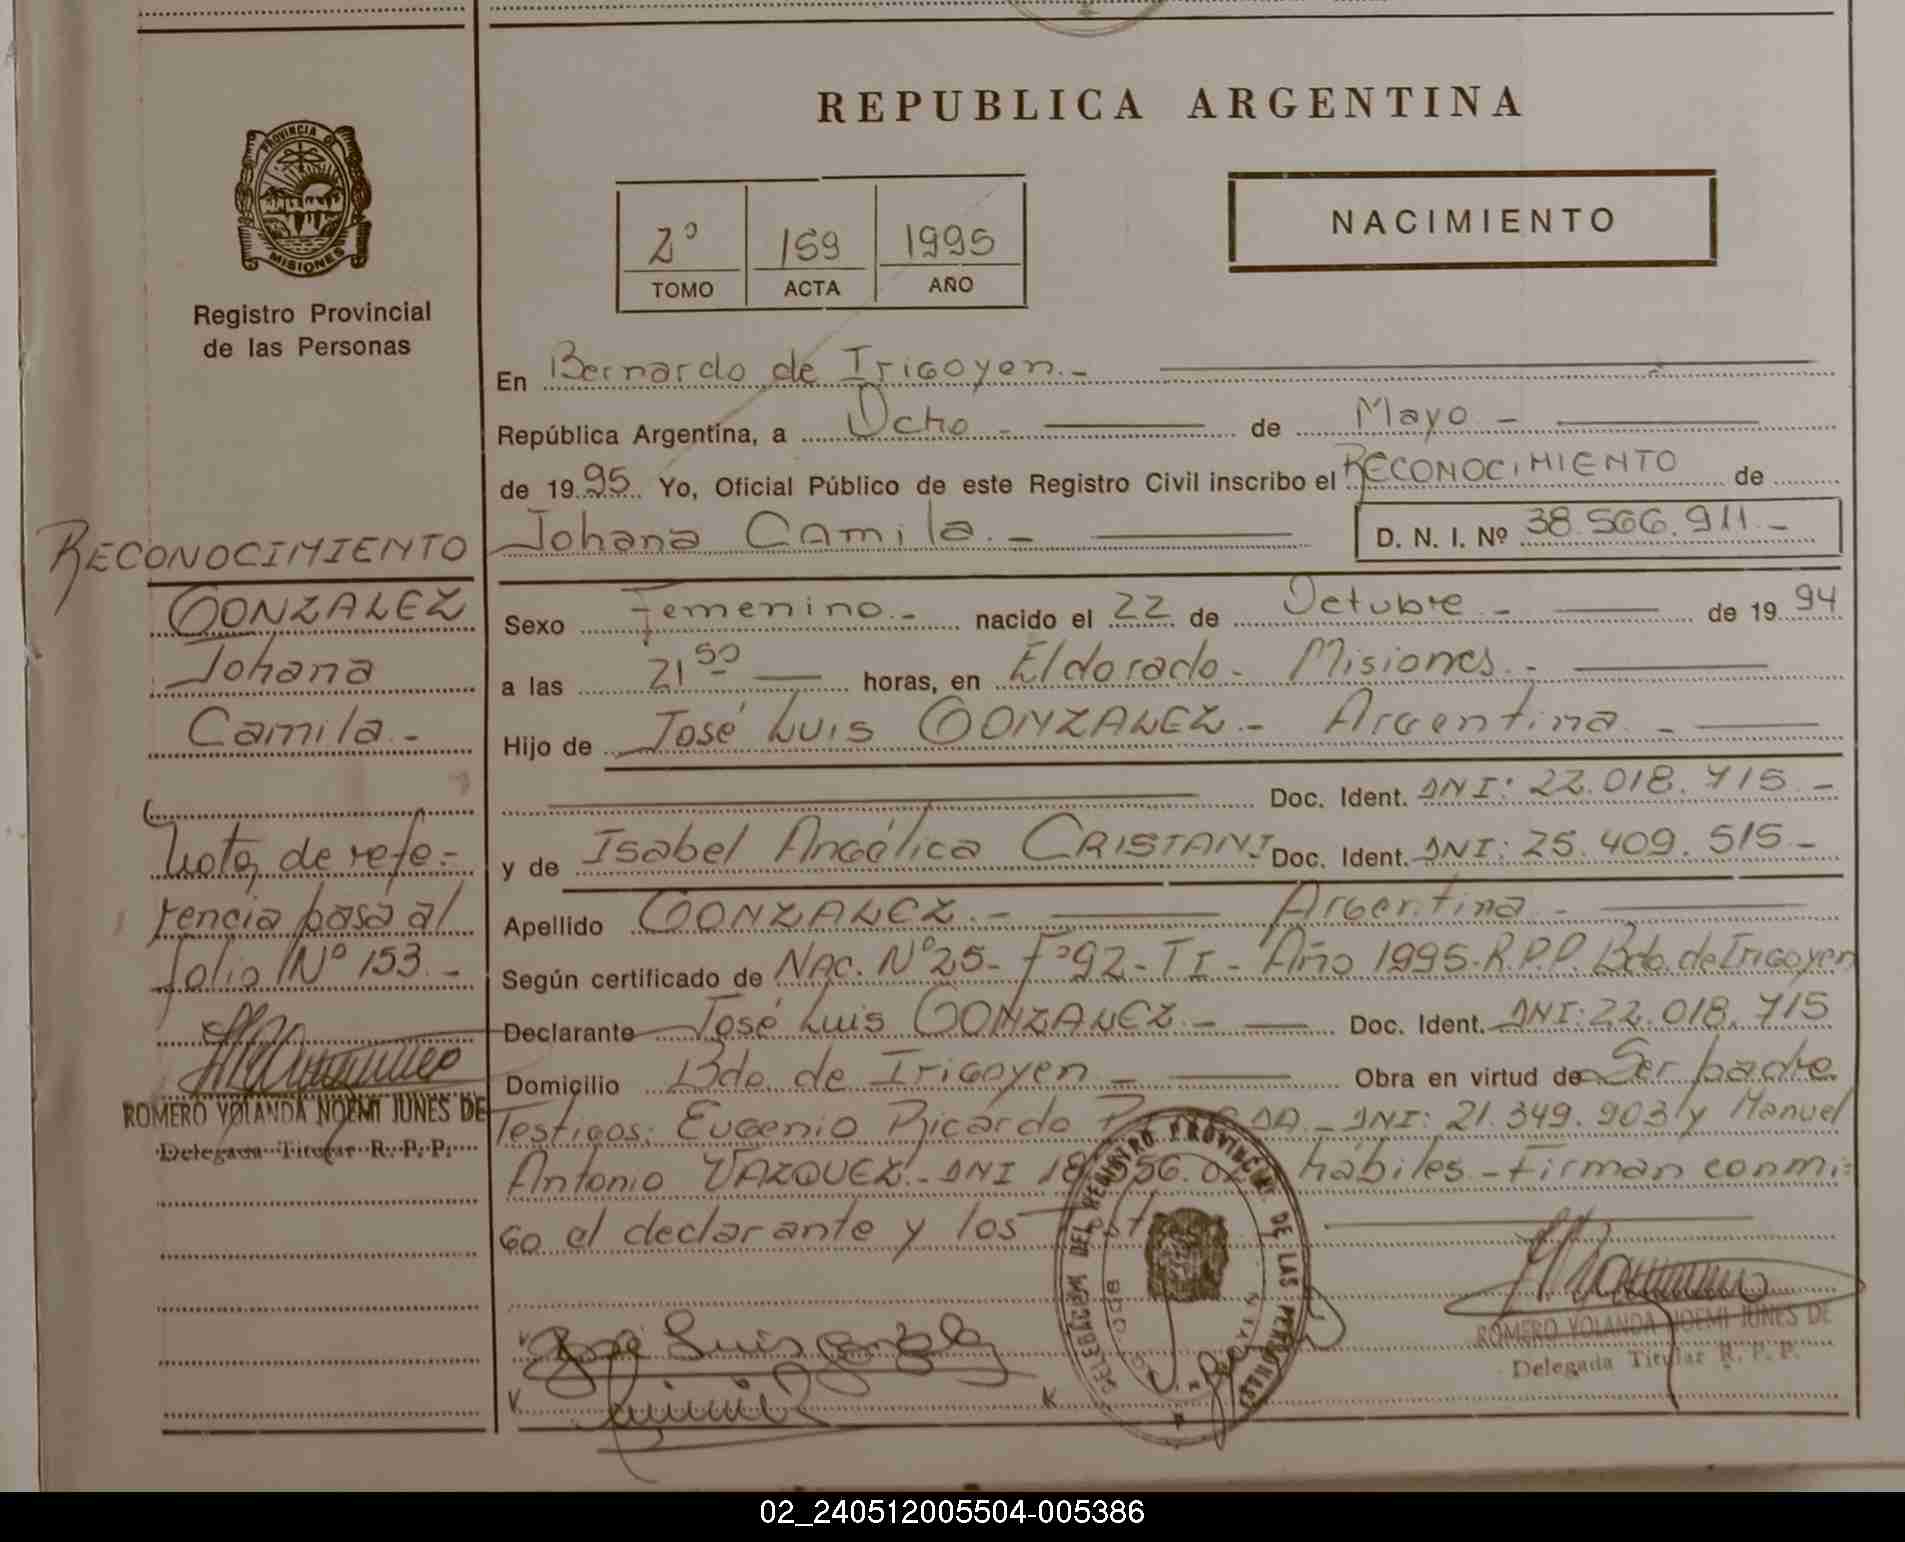 REPUBLICA ARGENTINA
PROVINCIA D MISIONES
Registro Provincial
de las Personas
2º 159 1995
TOMO ACTA AÑO
NACIMIENTO
En Bernardo de Irigoyen.-
República Argentina, a Ocho - de Mayo -
de 1995 Yo, Oficial Público de este Registro Civil inscribo el RECONOCIMIENTO de
Johana Camila.- D. N. I. Nº 38.566.911.-
Sexo Femenino.- nacido el 22 de Octubre - de 1994
a las 21 50 horas, en Eldorado - Misiones.-
Hijo de José Luis GONZALEZ.- Argentina.-
Doc. Ident. DNI: 22.018.715.-
y de Isabel Angélica CRISTANI Doc. Ident. DNI: 25.409.515.-
Apellido GONZALEZ.- Argentina.-
Según certificado de NAC. Nº 25- Fº 92- TI- Año 1995. R.P.P. Bdo. de Irigoyen
Declarante José Luis GONZALEZ.- Doc. Ident. DNI: 22.018.715
Domicilio Bdo de Irigoyen - Obra en virtud de Ser padre
Testigos: Eugenio Ricardo DA.- DNI: 21.349.903 y Manuel
Antonio VAZQUEZ.- DNI hábiles.- Firman conmi=
go el declarante y los
RECONOCIMIENTO
GONZALEZ
Johana
Camila.-
Nota de refe=
rencia pasa al
folio Nº 153.-
ROMERO YOLANDA NOEMI JUNES DE
Delegada Titular R. P. P.
José Luis Gonzalez
DELEGACION DEL REGISTRO PROVINCIAL DE LAS PERSONAS
ROMERO YOLANDA NOEMI JUNES DE
Delegada Titular R. P. P.
02_240512005504-005386